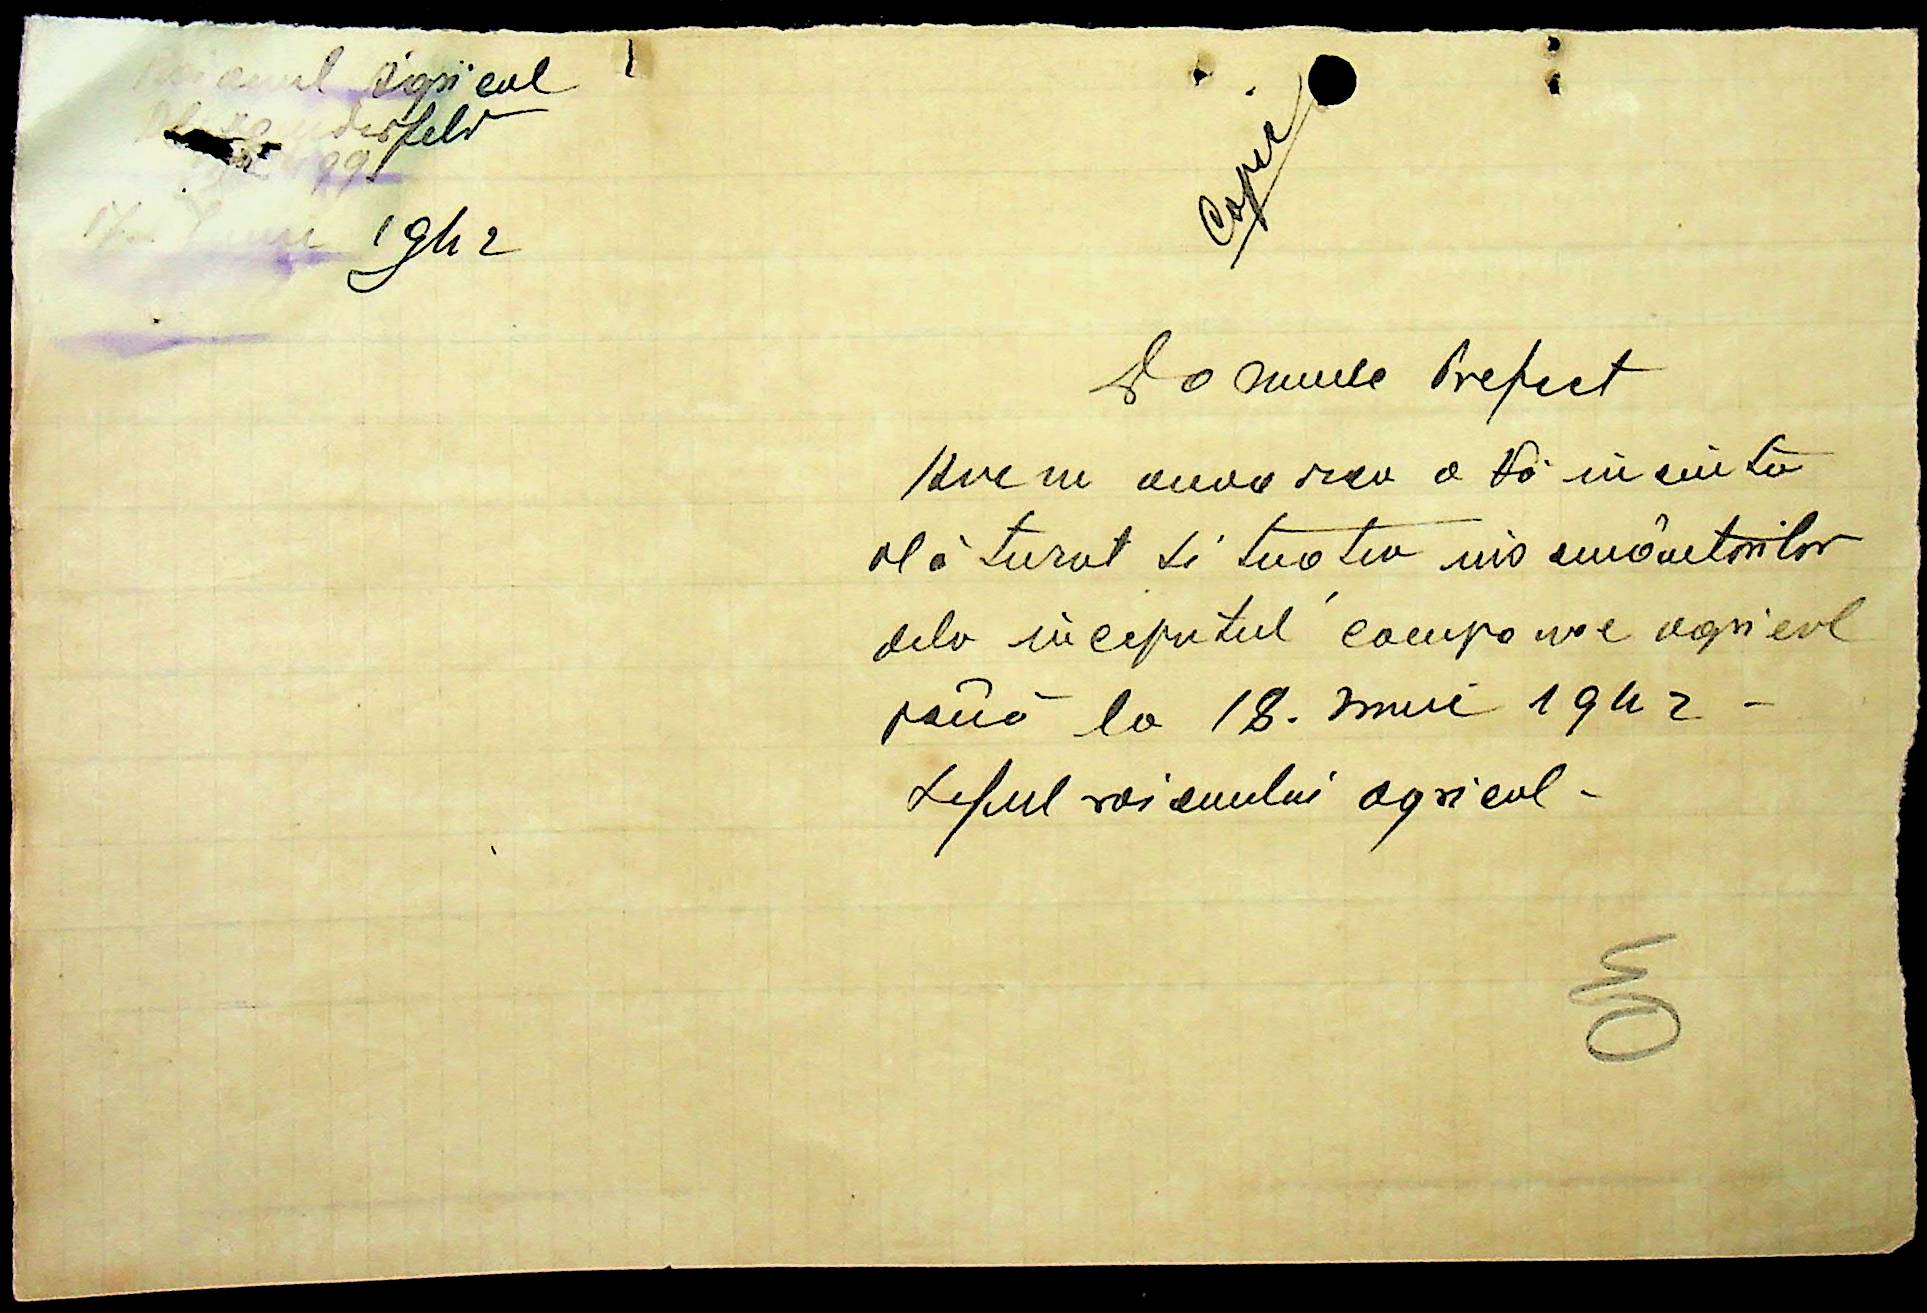 Raionul Agricol
Alexanderfeld
991
Iunie 1942
Copie
Domnule Prefect
Avem onoarea a Vă înainta
alăturat situatia însămânțărilor
dela începutul campaniei agricol
până la 18. Iunie 1942 -
Șeful raionului agricol -